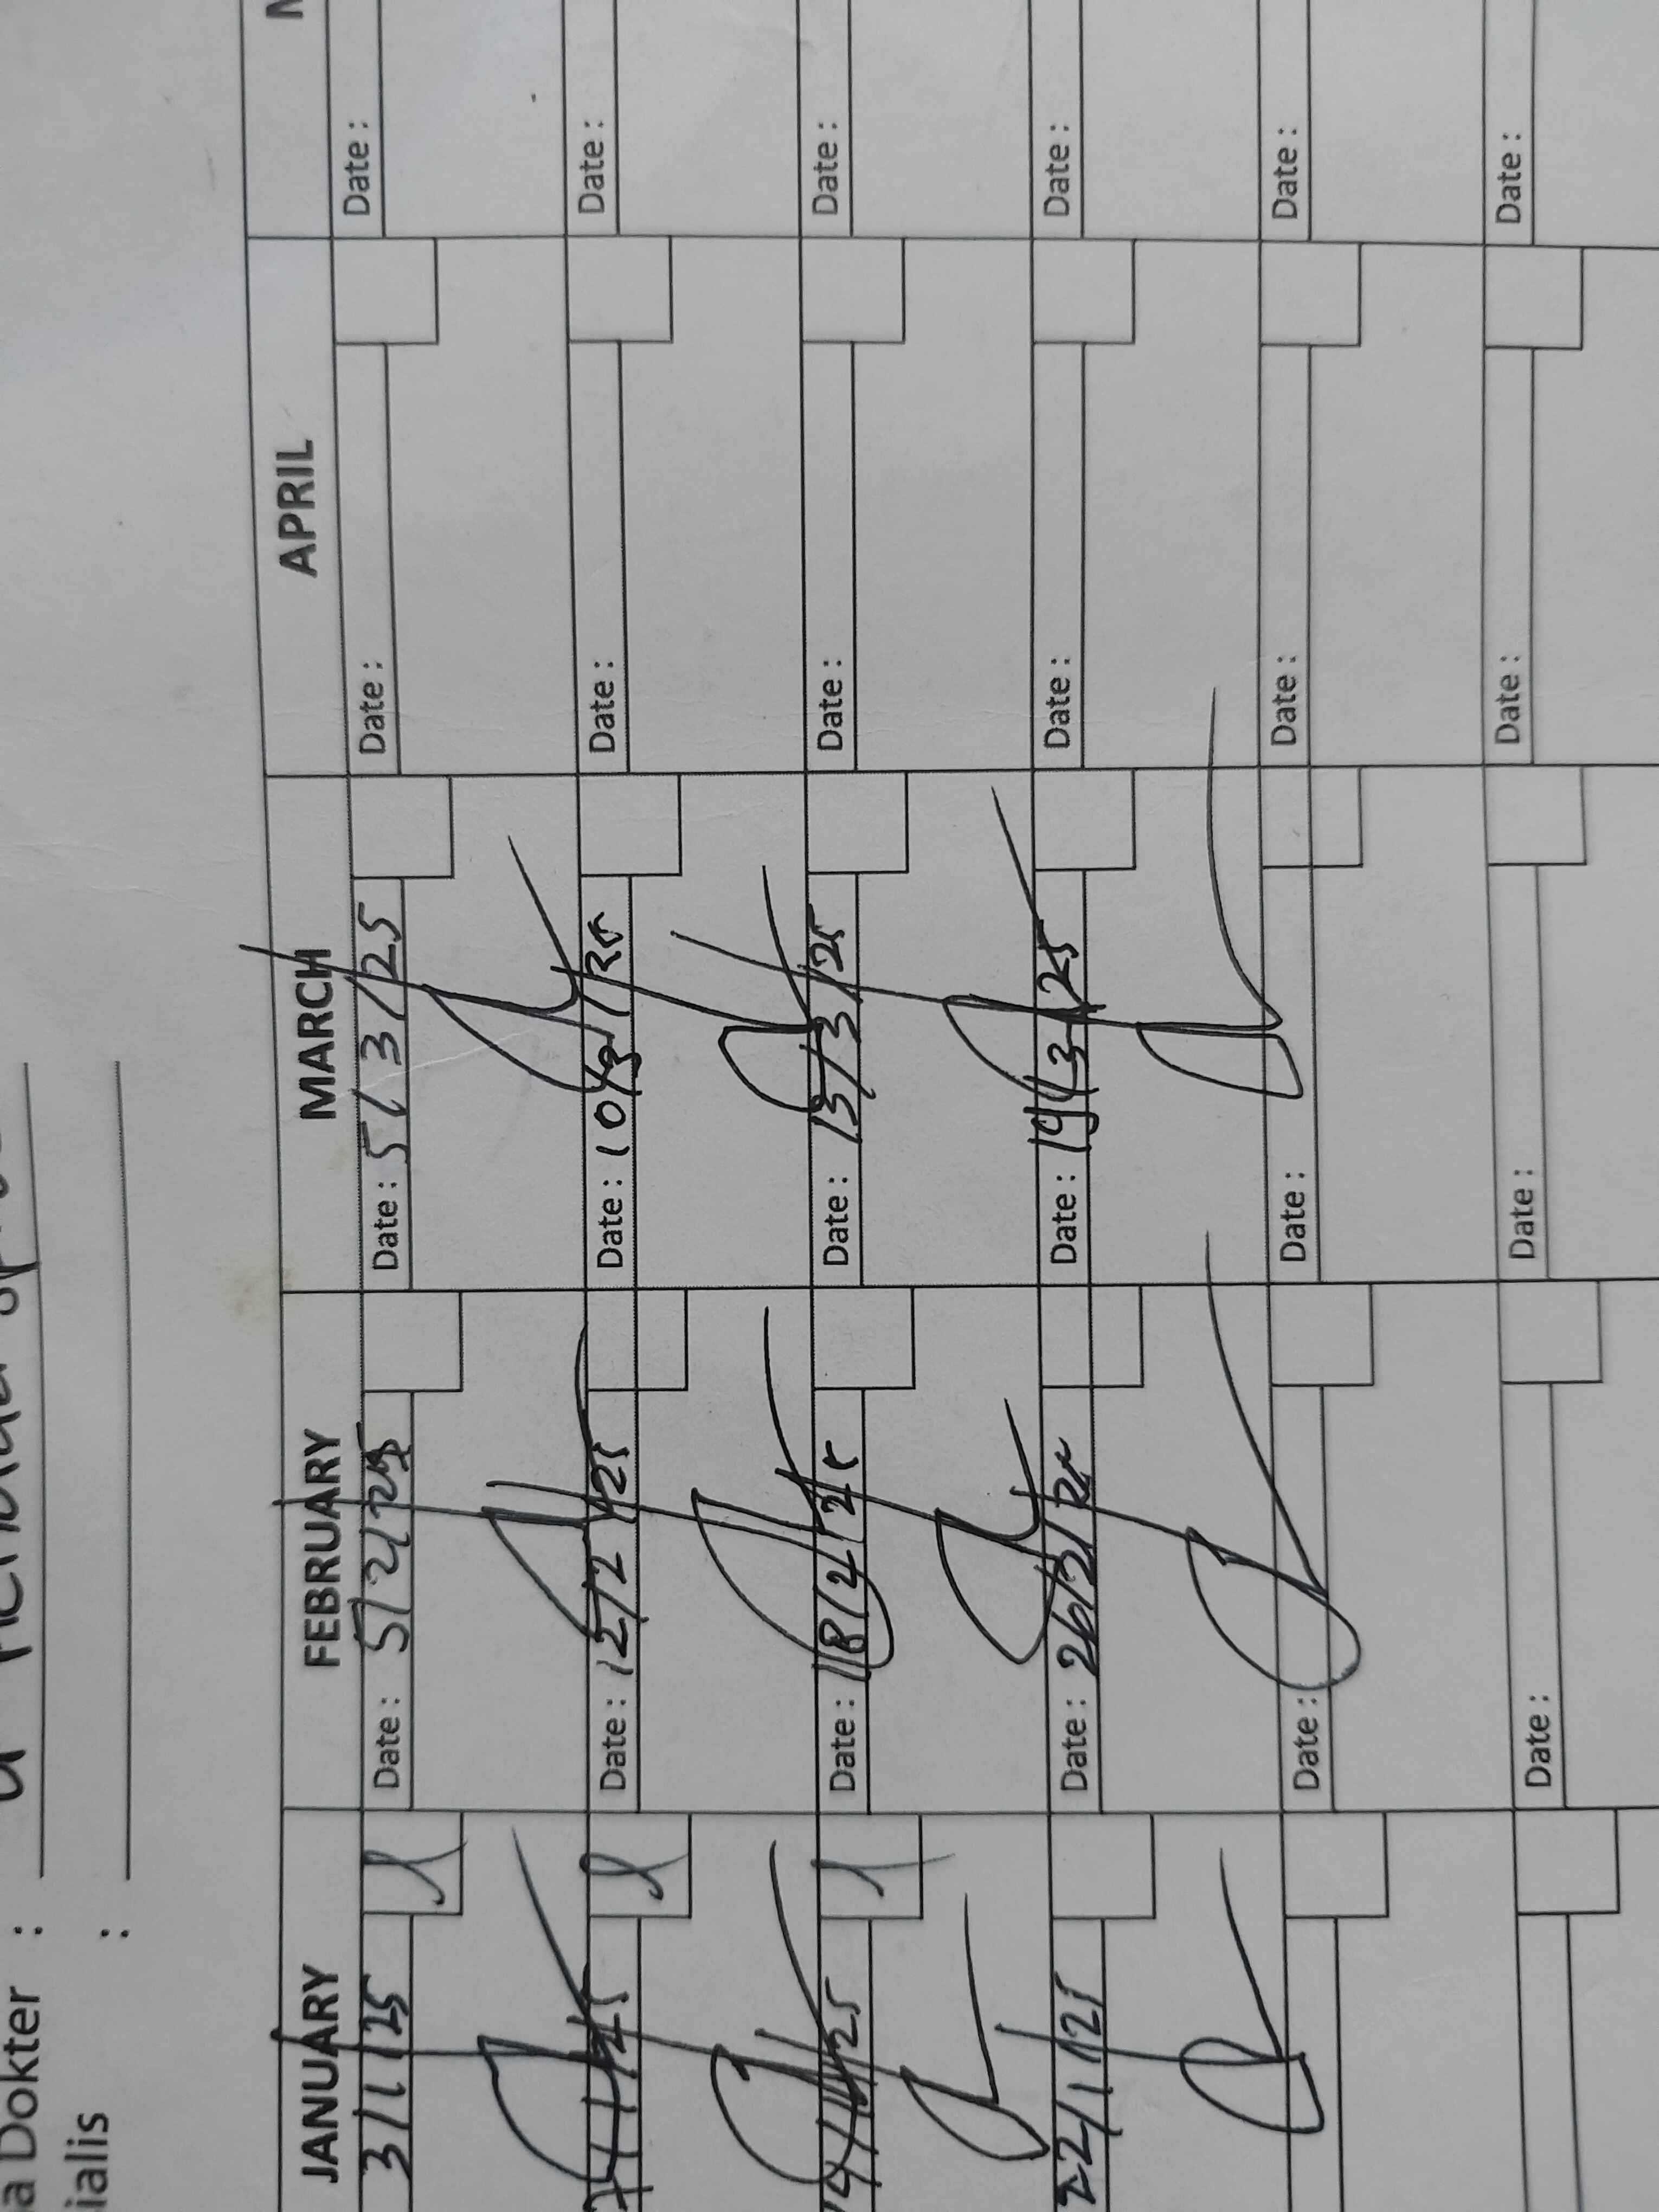 a Dokter :
ialis :
JANUARY FEBRUARY MARCH APRIL
3/1/25 Date : 5/2/25 Date : 5/3/25 Date : Date :
/1/25 Date : 12/2/25 Date : 10/3/25 Date : Date :
/1/25 Date : 18/2/25 Date : 13/3/25 Date : Date :
22/1/25 Date : 26/2/25 Date : 19/3/25 Date : Date :
Date : Date : Date : Date :
Date : Date : Date : Date :